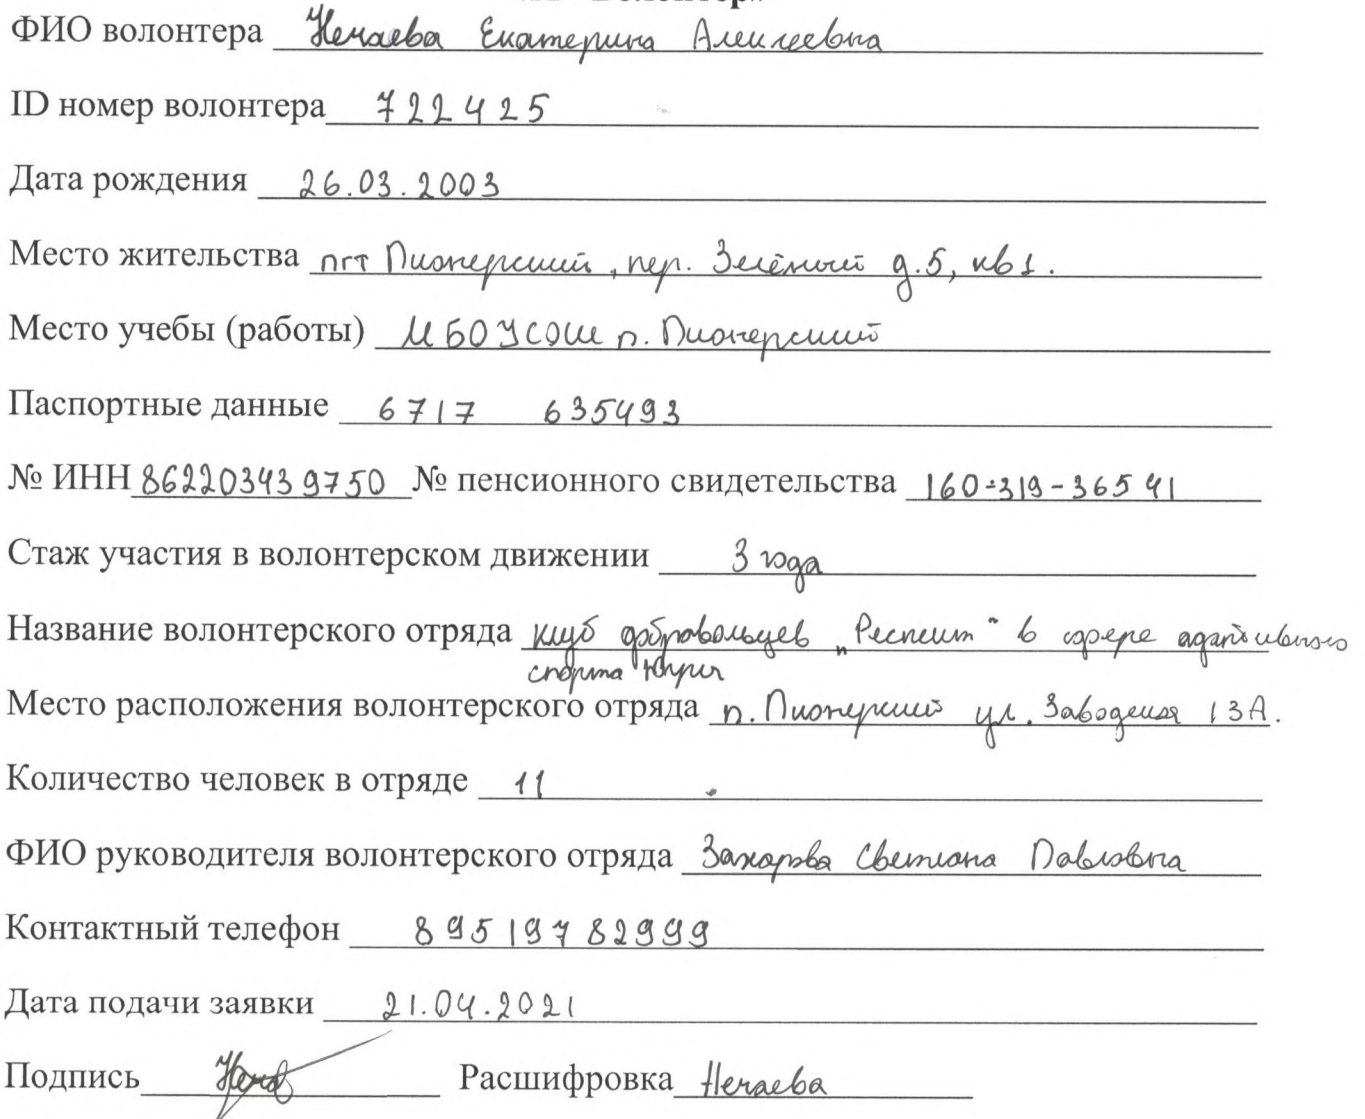 ФИО волонтера Нечаева Екатерина Алексеевна
ID номер волонтера 722425
Дата рождения 26.03.2003
Место жительства пгт Пионерский, пер. Зелёный д.5, кв 1.
Место учебы (работы) МБОУСОШ п. Пионерский
Паспортные данные 6717 635493
№ ИНН 862203439750 № пенсионного свидетельства 160-319-365 41
Стаж участия в волонтерском движении 3 года
Название волонтерского отряда клуб добровольцев „Респект" в сфере адаптивного
спорта Югры
Место расположения волонтерского отряда п. Пионерский ул. Заводская 13А.
Количество человек в отряде 11
ФИО руководителя волонтерского отряда Захарова Светлана Павловна
Контактный телефон 89519782999
Дата подачи заявки 21.04.2021
Подпись Расшифровка Нечаева